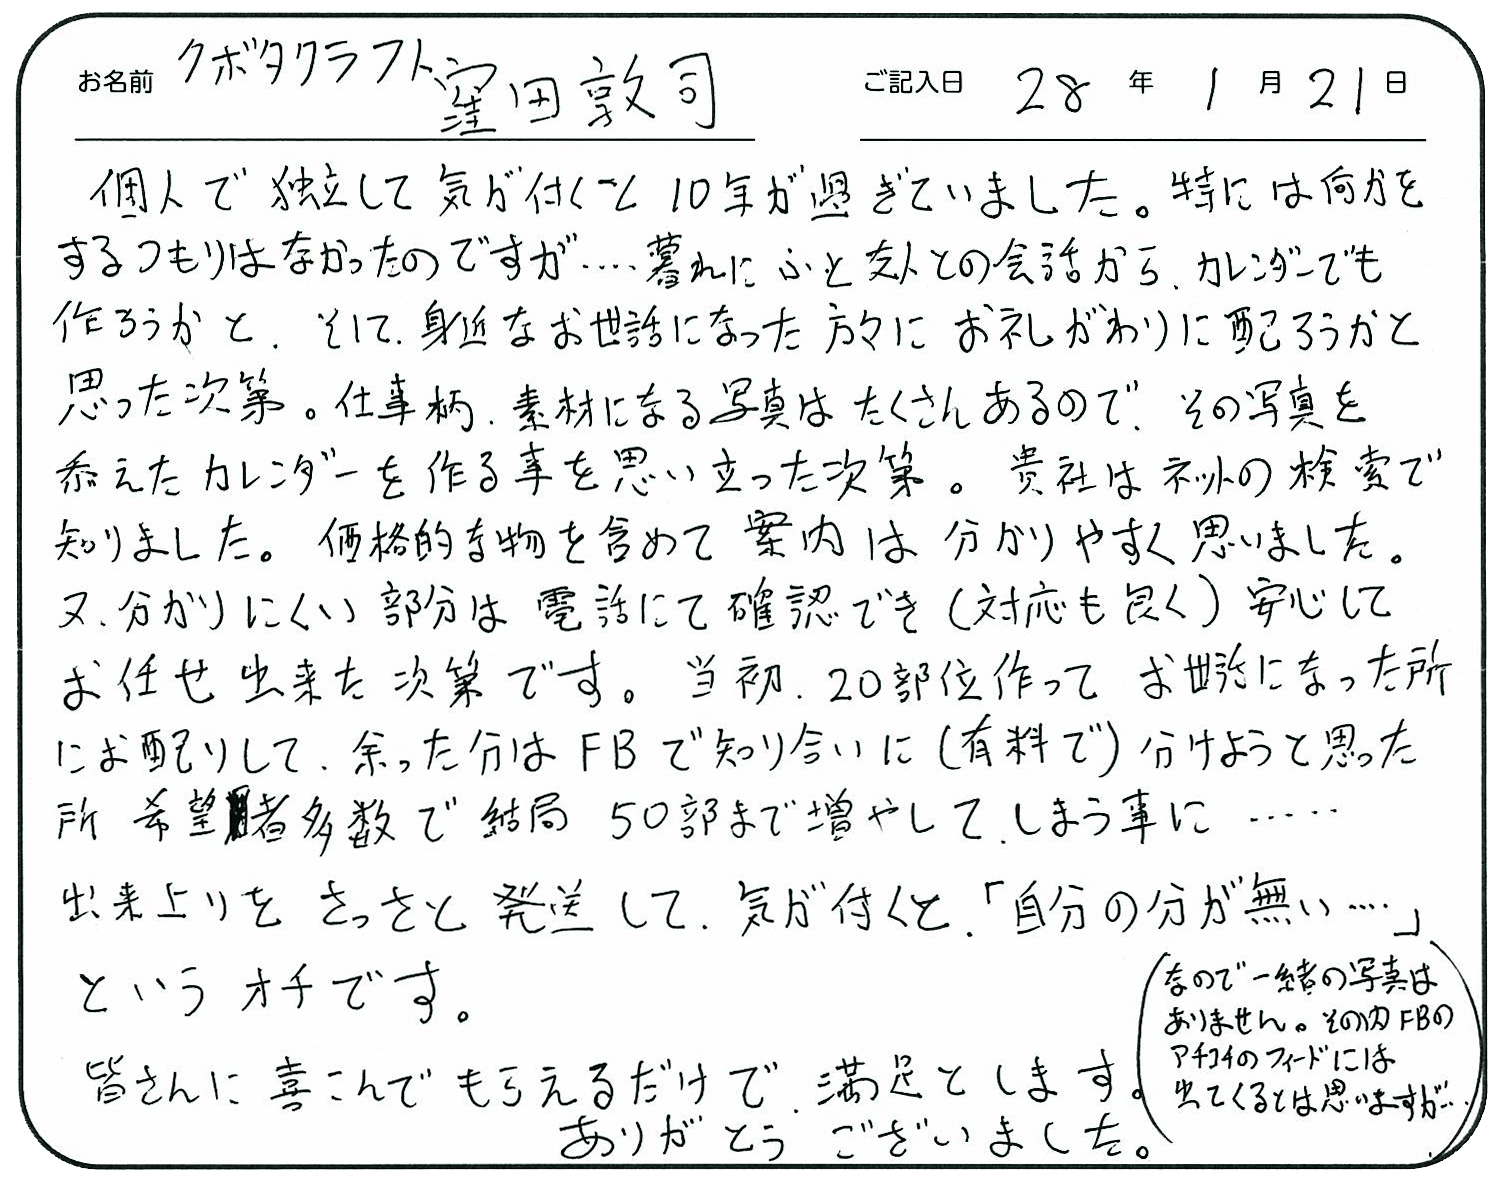 お名前 クボタクラフト 窪田敦司 ご記入日 28 年 1 月 21 日
個人で独立して気が付くと10年が過ぎていました。特には何かを
するつもりはなかったのですが‥‥暮れにふと友人との会話から、カレンダーでも
作ろうかと、そして、身近なお世話になった方々にお礼がわりに配ろうかと
思った次第。仕事柄、素材になる写真はたくさんあるので、その写真を
添えたカレンダーを作る事を思い立った次第。貴社はネットの検索で
知りました。価格的な物を含めて案内は分かりやすく思いました。
又、分かりにくい部分は電話にて確認でき(対応も良く)安心して
お任せ出来た次第です。当初、20部位作ってお世話になった所
にお配りして、余った分はFBで知り合いに(有料で)分けようと思った
所希望者多数で結局50部まで増やして、しまう事に‥‥‥
出来上りをさっさと発送して、気が付くと、「自分の分が無い‥‥」
というオチです。
(なので一緒の写真は
ありません。その内FBの
アチコチのフィードには
出てくるとは思いますが‥)
皆さんに喜こんでもらえるだけで、満足とします。
ありがとうございました。